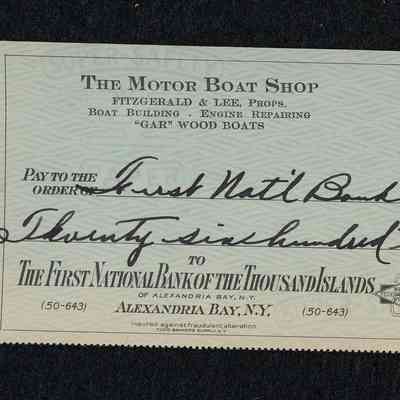 THE MOTOR BOAT SHOP
FITZGERALD & LEE, PROPS.
BOAT BUILDING - ENGINE REPAIRING
"GAR" WOOD BOATS
PAY TO THE
ORDER OF First Nat'l Bank
Twenty six hundred
TO
THE FIRST NATIONAL BANK OF THE THOUSAND ISLANDS
OF ALEXANDRIA BAY, N.Y.
(50-643) ALEXANDRIA BAY, N.Y. (50-643)
Insured against fraudulent alteration